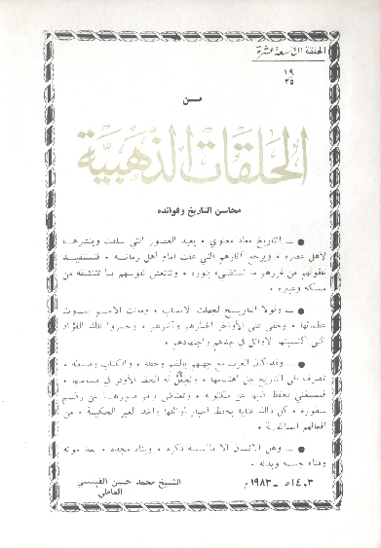 الحلقة التاسعة عشرة
١٩
٣٥
من
الحلقات الذهبية
محاسن التاريخ وفوائده
● ــ التاريخ معاد معنوي ، يعيد العصور التي سلفت وينشرها
لاهل عصره ، ويرجع آثارهم التي عفت امام أهل زمانه ، فتستفيد
عقولهم من غررهم ما تستضيء بنوره ، وتنتعش نفوسهم بما تنتشقه من
مسكه وعبيره .
● ــ ولولا التاريخ لجهلت الانساب ، وماتت الامم بموت
عظمائها ، وخفي على الأواخر أخبارهم وآثارهم ، وخسروا تلك الفوائد
التي اكتسبها الاوائل في جدهم واجتهادهم .
● ــ وقد كان العرب مع جهلهم بالقلم وخطه ، والكتاب وضبطه ،
تصرف الى التاريخ جل اهتمامها ، وتجعل له الحظ الأوفر في مساعيها ،
فتستغني بحفظ قلبها عن مكتوبه ، وتعتاض برقم صدورها عن رقم
سطوره ، كل ذلك عناية بحفظ أخبار أوائلها وأخذ العبر الحكيمة من
أفعالهم السالفة .
● ــ وهل الانسان الا ما أسسه ذكره ، وبناه مجده ، بعد موته
وفناء جسمه وبدنه .
الشيخ محمد حسن القبيسي
العاملي
١٤٠٣ هـ ــ ١٩٨٣ م